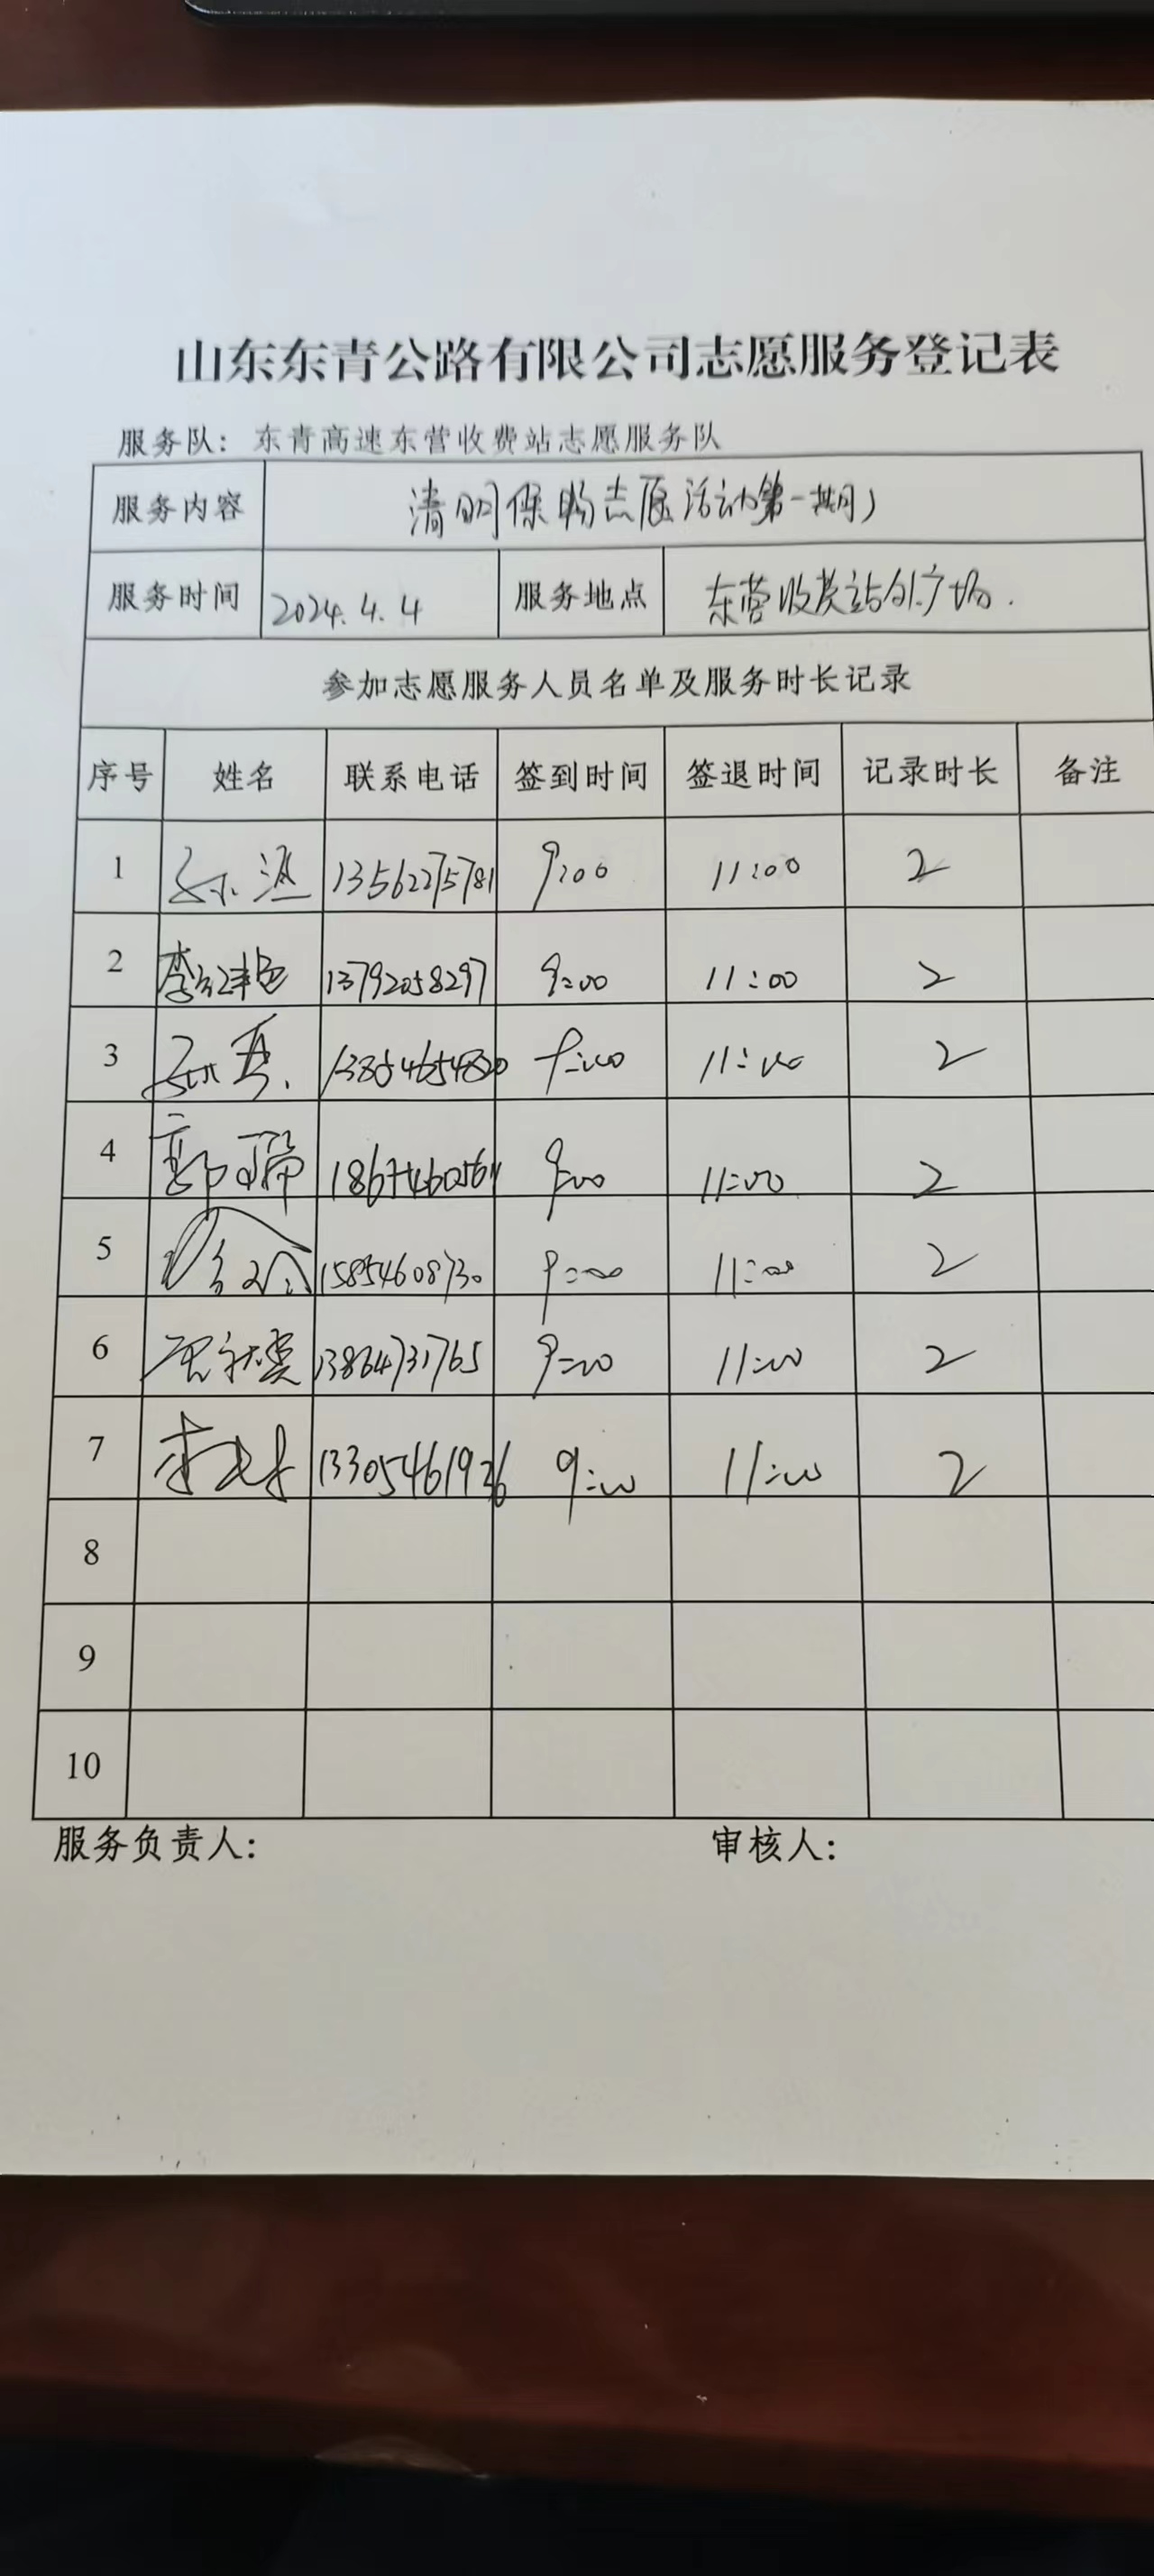 山东东青公路有限公司志愿服务登记表
服务队：东青高速东营收费站志愿服务队
服务内容 清明保畅志愿活动第一期）
服务时间 2024.4.4 服务地点 东营收费站外广场.
参加志愿服务人员名单及服务时长记录
序号 姓名 联系电话 签到时间 签退时间 记录时长 备注
1 13562275781 9:00 11:00 2
2 13792058297 9:00 11:00 2
3 9:00 11:00 2
4 9:00 11:00 2
5 15854608730 9:00 11:00 2
6 13864731765 9:00 11:00 2
7 9:00 11:00 2
8
9
10
服务负责人： 审核人：